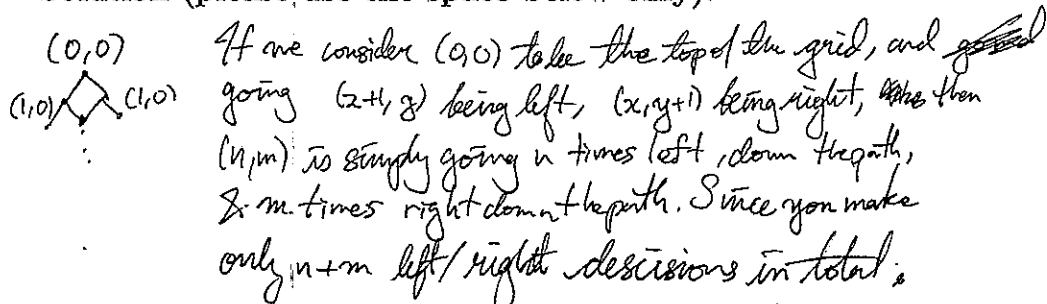 (0,0)
(1,0) (1,0)
If we consider (0,0) to be the top of the grid, and
going (x+1, y) being left, (x,y+1) being right, then
(n,m) is simply going n times left, down the path,
& m times right down the path. Since you make
only n+m left/right descisions in total.